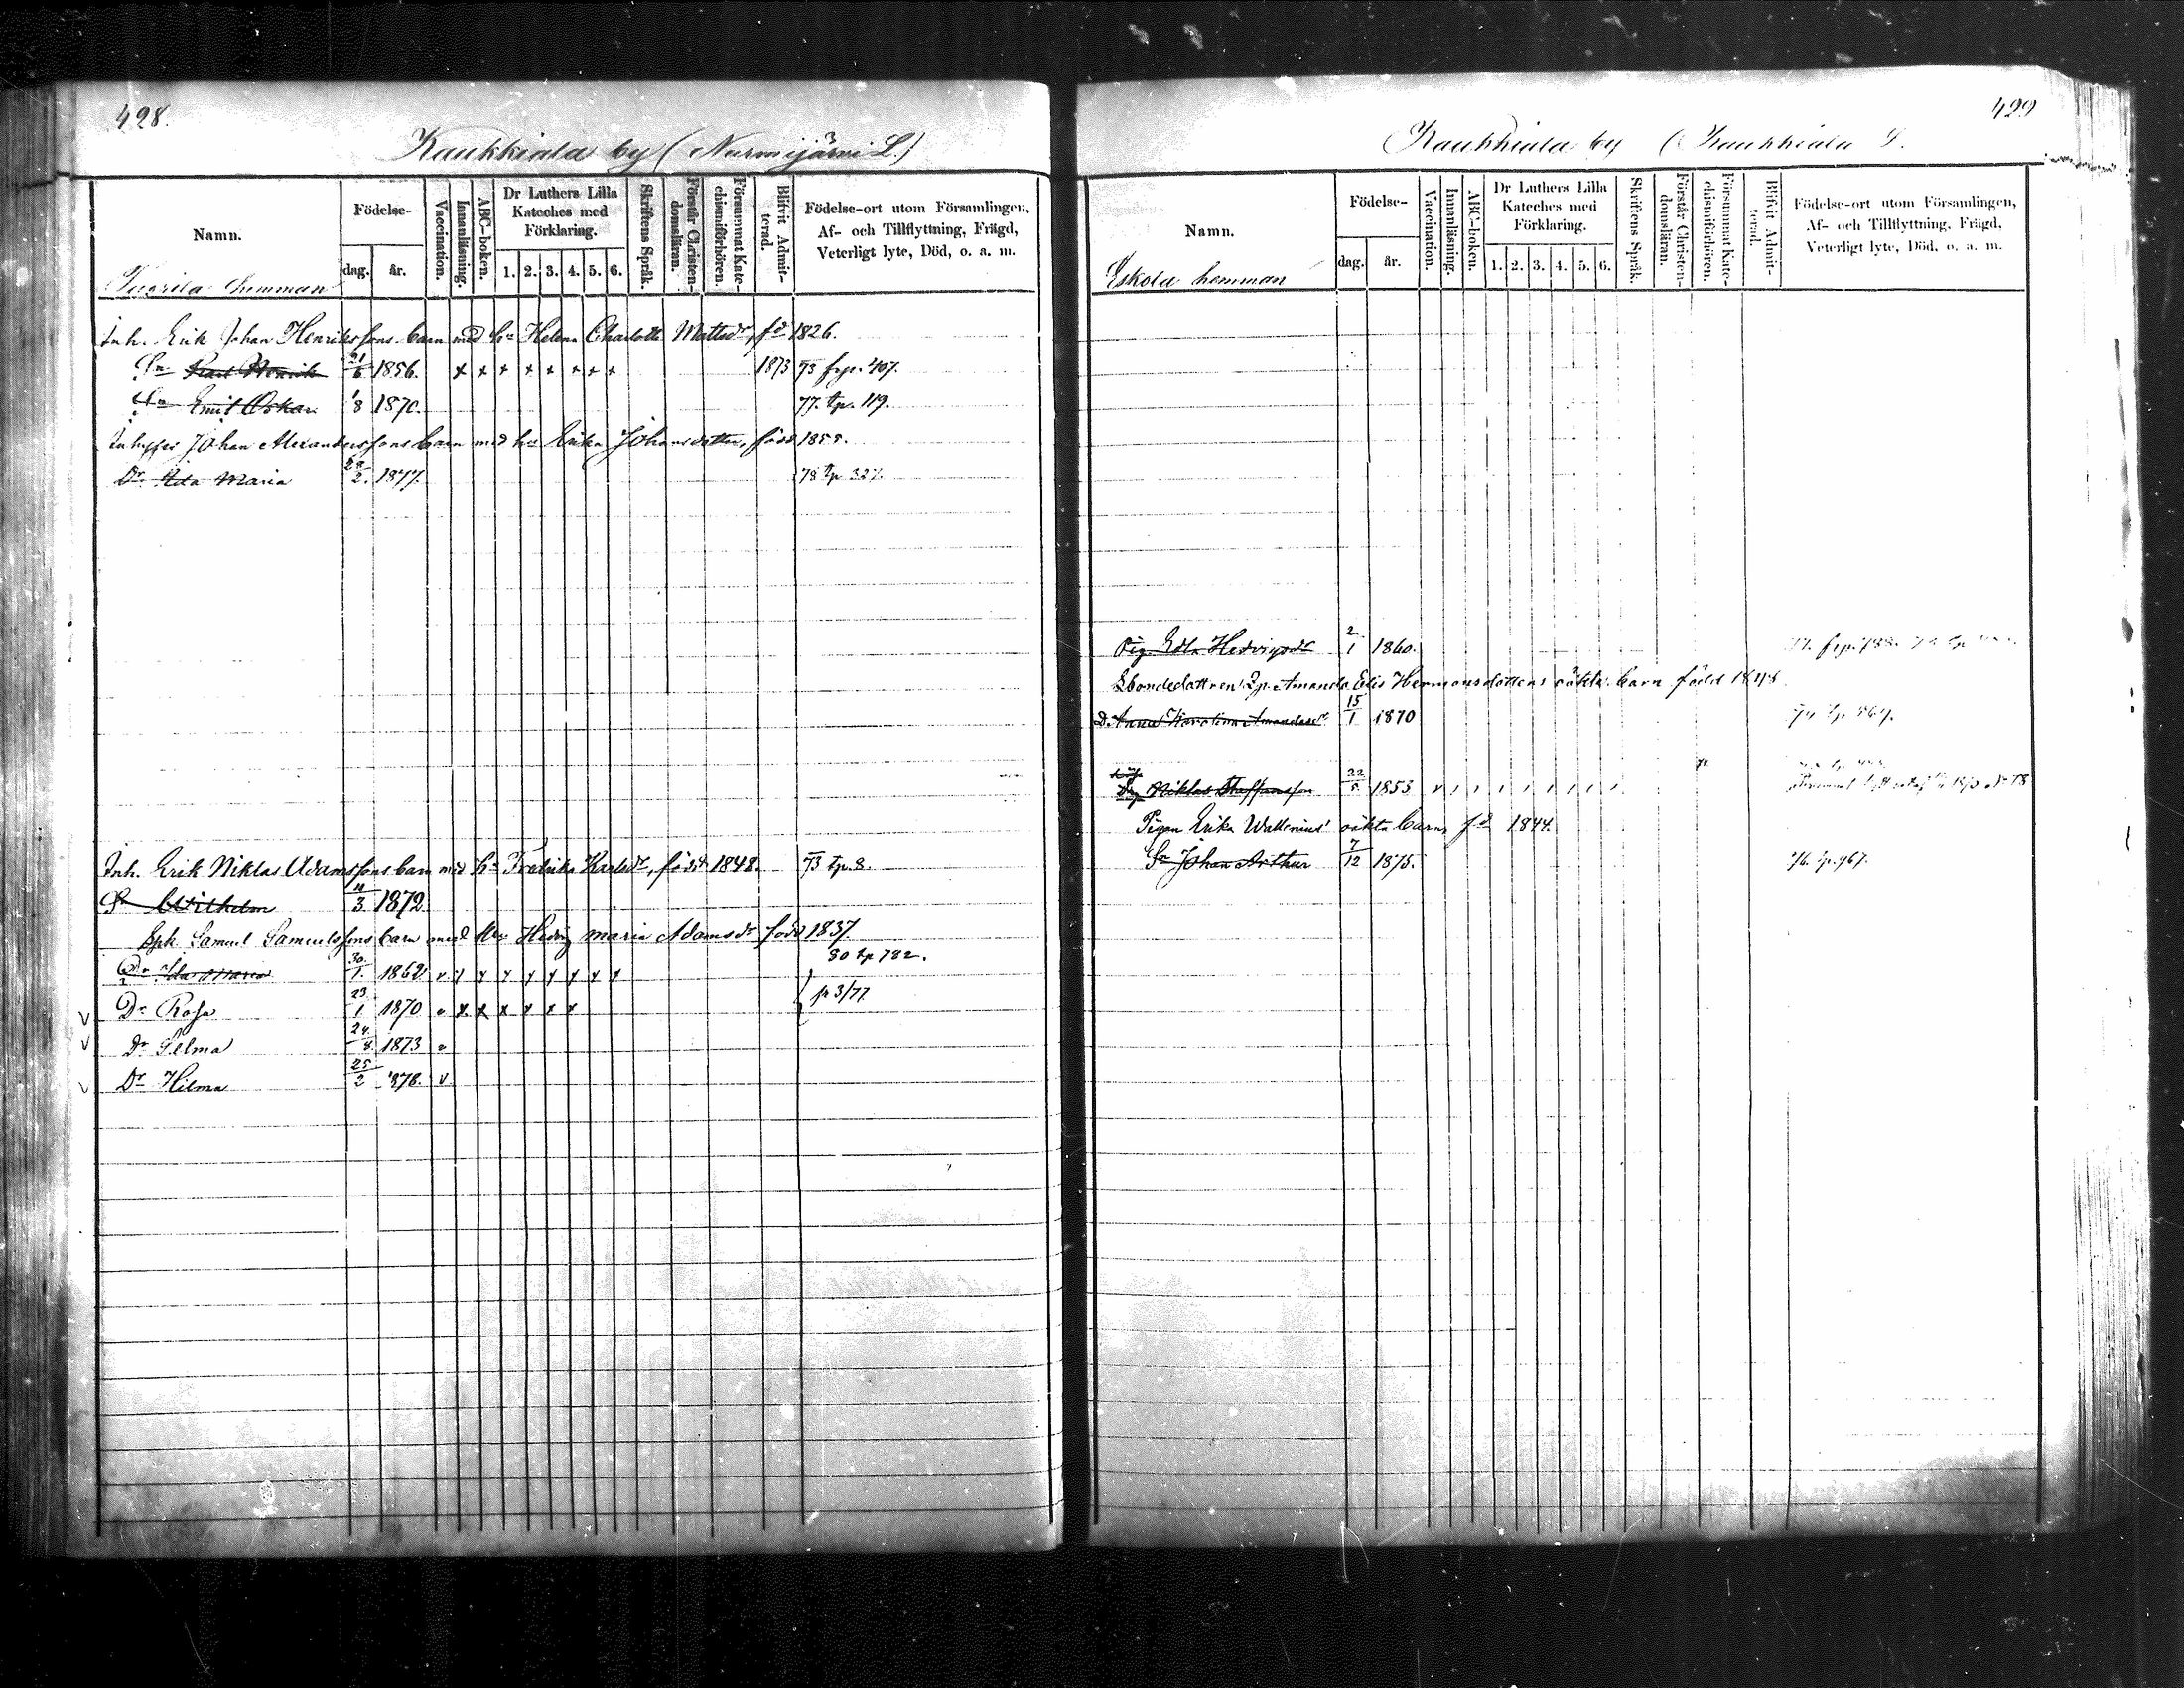 428.
Kaukkiala by (Nurmijärvi L.)
Namn.
Födelse-
dag.
år.
Vaccination.
Innanläsning.
ABC-boken.
Dr Luthers Lilla
Kateches med
Förklaring.
1. 2. 3. 4. 5. 6.
Skriftens Språk.
Förstår Christen-
domsläran.
Försummat Kate-
chismiförhören.
Blifvit Admit-
terad.
Födelse-ort utom Församlingen,
Af- och Tillflyttning, Frägd,
Veterligt lyte, Död, o. a. m.
hemman
Inh. Erik Johan Henrikssons barn med h. Helena Charlotta Mattsdr, fd 1826.
Sn Karl Henrik 21/6 1856. x x x x x x x x 1873 73 frp. 407.
Sn Emil Oskar 1/8 1870. 77. tp. 119.
Johan Alexanderssons barn med hu Erika Johansdotter, född 1855.
Dr. Ida Maria 28/2. 1877. 78 tp 327.
Inh. Erik Niklas Adamssons barn med hu Fredrika Karlsdr, född 1848. 73 tp. 8.
Sn Wilhelm 3 1872.
Samuel Samuelssons barn med hu Hedvig Maria Adamsdr född 1837
Dr Ida Maria 30./1. 1862 v y y y y y y y y 80 tp 782.
Dr Rosa 23./1 1870 x x x x x x fr 3/77
Dr Selma 24./8. 1873
Dr Hilma 25/2 1878. v
429
Kaukkiala by (Kaukkiala L.
Namn.
Födelse-
dag.
år.
Vaccination.
Innanläsning.
ABC-boken.
Dr Luthers Lilla
Kateches med
Förklaring.
1. 2. 3. 4. 5. 6.
Skriftens Språk.
Förstår Christen-
domsläran.
Försummat Kate-
chismiförhören.
Blifvit Admit-
terad.
Födelse-ort utom Församlingen,
Af- och Tillflyttning, Frägd,
Veterligt lyte, Död, o. a. m.
Eskola hemman
Pig. Edla Hedvigsdr 2/1 1860. 77. frp. 788.
Amanda Elis Hermansdotters oäkta barn född 1848
D. Anna Karolina Amandasdr 15/1 1870
Niklas Staffansson 22/5 1853
Pigan Erika Wallenius' oäkta barn fd 1844.
Sn Johan Arthur 7/12 1875. 76. tp. 967.